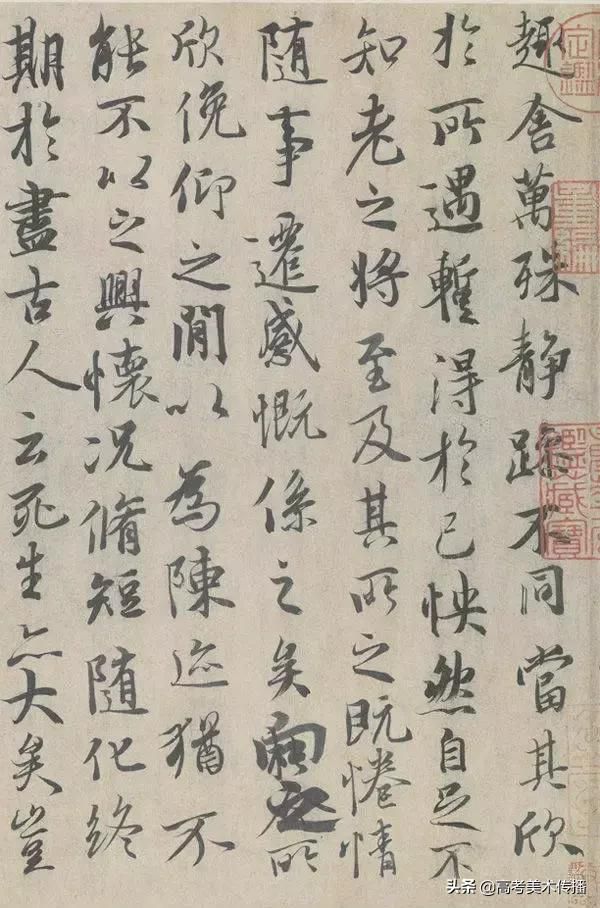 趣舍萬殊静躁不同當其欣
於所遇暫得於己怏然自足不
知老之將至及其所之既惓情
隨事遷感慨係之矣向之所
欣俛仰之閒以為陳迹猶不
能不以之興懷況脩短隨化終
期於盡古人云死生亦大矣豈
头条 @高考美术传播